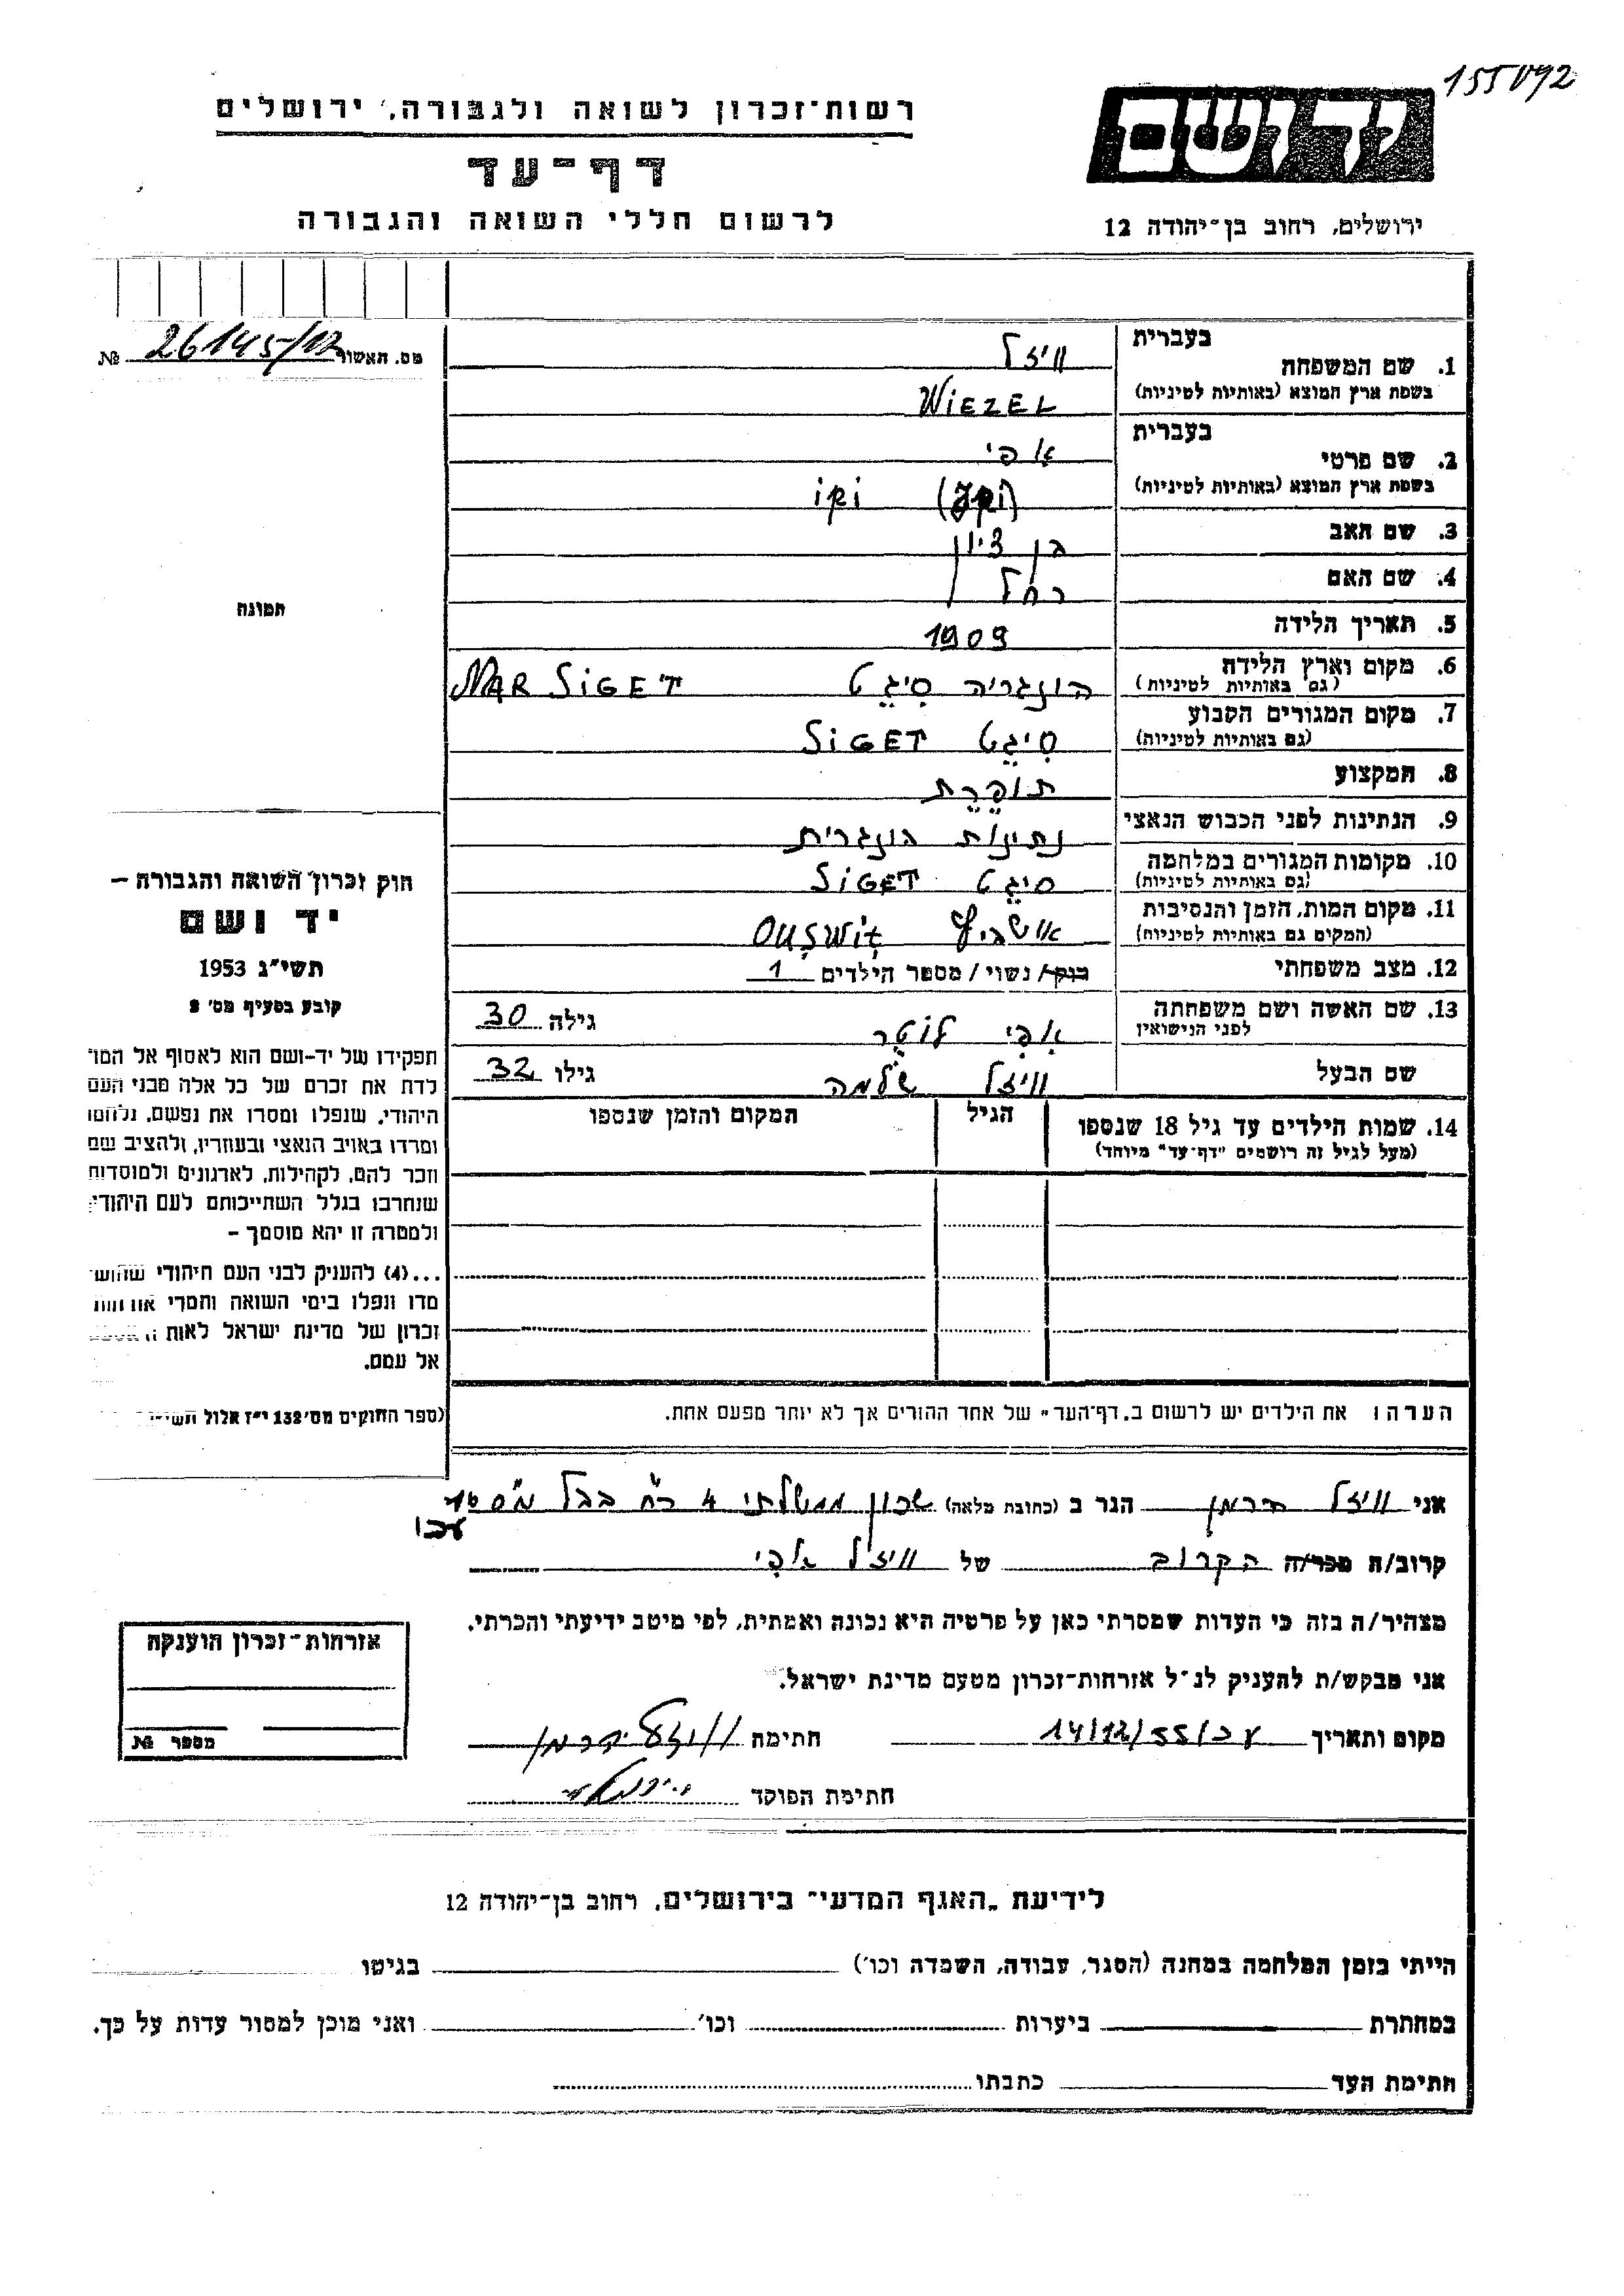 155092
יד ושם
רשות־זכרון לשואה ולגבורה, ירושלים
דף־עד
לרשום חללי השואה והגבורה
ירושלים, רחוב בן־יהודה 12
מס. תאשור 26145/12 №
תמונה
חוק זכרון השואה והגבורה –
יד ושם
תשי״ג 1953
קובע בסעיף מס׳ 2
תפקידו של יד-ושם הוא לאסוף אל המו
לדת את זכרם של כל אלה מבני העם
היהודי, שנפלו ומסרו את נפשם, נלחמו
ומרדו באויב הנאצי ובעוזריו, ולהציב שם
וזכר להם, לקהילות, לארגונים ולמוסדות
שנחרבו בגלל השתייכותם לעם היהודי,
ולמטרה זו יהא מוסמך –
...(4) להעניק לבני העם היהודי שהוש
מדו ונפלו בימי השואה והמרי אזרחות
זכרון של מדינת ישראל לאות
אל עמם.
(ספר החוקים מס׳ 132 י״ז אלול תשי״
1. שם המשפחה בעברית וויזל
בשפת ארץ המוצא (באותיות לטיניות) WIEZEL
2. שם פרטי בעברית אִפי
בשפת ארץ המוצא (באותיות לטיניות) (Jpi) ipi
3. שם האב בן ציון
4. שם האם רחל
5. תאריך הלידה 1909
6. מקום וארץ הלידה הונגריה סיגט MAR SIGET
(גם באותיות לטיניות)
7. מקום המגורים הקבוע סיגט SIGET
(גם באותיות לטיניות)
8. המקצוע תופרת
9. הנתינות לפני הכבוש הנאצי נתינות הונגרית
10. מקומות המגורים במלחמה סיגט SIGET
(גם באותיות לטיניות)
11. מקום המות, הזמן והנסיבות אושביץ OUSWIT
(המקום גם באותיות לטיניות)
12. מצב משפחתי רוק/ נשוי / מספר הילדים 1
13. שם האשה ושם משפחתה אִפי גילה 30
לפני הנישואין
שם הבעל וויזל שלמה גילו 32
14. שמות הילדים עד גיל 18 שנספו הגיל המקום והזמן שנספו
(מעל לגיל זה רושמים ״דף־עד״ מיוחד)
הערה: את הילדים יש לרשום ב„דף־העד״ של אחד ההורים אך לא יותר מפעם אחת.
אני וויזל הרמן הגר ב (כתובת מלאה) שכון ממשלתי 4
עכו
קרוב/ה מכר/ה הקרוב של וויזל אפי
מצהיר/ה בזה כי העדות שמסרתי כאן על פרטיה היא נכונה ואמתית, לפי מיטב ידיעתי והכרתי.
אני מבקש/ת להעניק לנ״ל אזרחות-זכרון מטעם מדינת ישראל.
מקום ותאריך עכו 14/12/55 חתימה וויזל הרמן
חתימת הפוקד
אזרחות־זכרון הוענקה
מספר №
לידיעת „האגף המדעי״ בירושלים, רחוב בן־יהודה 12
הייתי בזמן המלחמה במחנה (הסגר, עבודה, השמדה וכו׳) בגיטו
במחתרת ביערות וכו׳ ואני מוכן למסור עדות על כך.
חתימת העד כתבתו